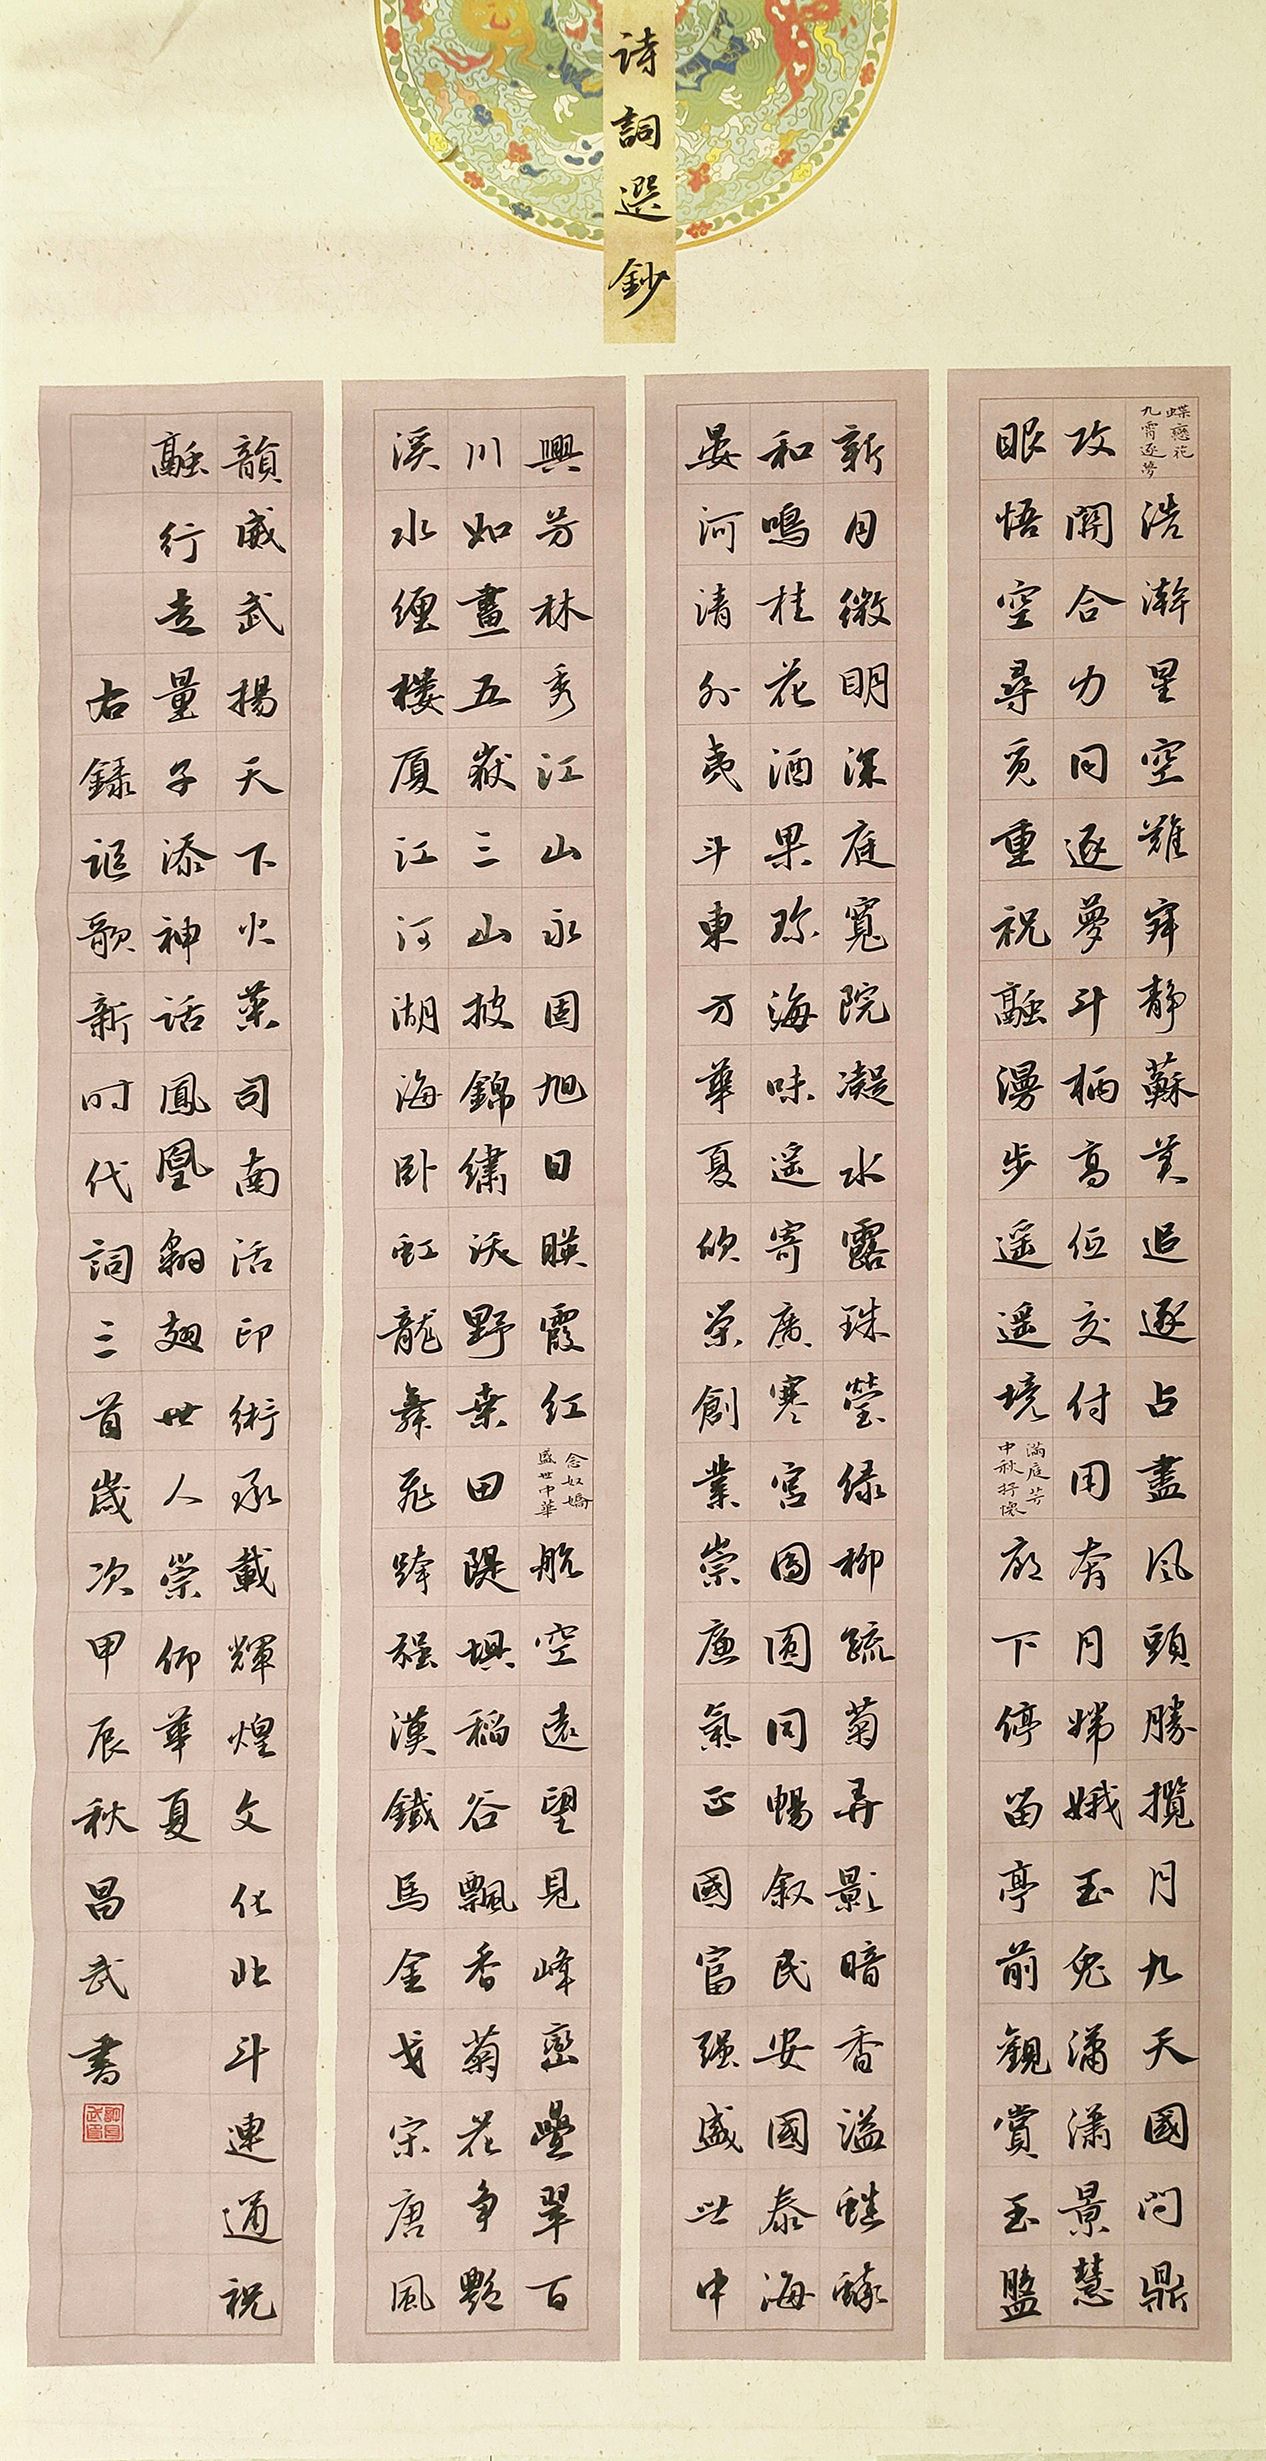 诗詞選鈔
蝶戀花
九霄逐夢
浩瀚星空難寂静蘇美追逐占盡風頭勝攬月九天國問鼎
攻關合力同逐夢斗柄高低交付用奔月嫦娥玉兔瀟瀟景慧
眼悟空尋覓重祝融漫步遥遥境
滿庭芳
中秋抒懷
廊下停留亭前觀賞玉盤
新月微明深庭寬院凝水露珠瑩绿柳疏菊弄影暗香溢蟋蟀
和鳴桂花酒果珍海味遥寄廣寒宫團圆同暢叙民安國泰海
晏河清外夷斗東方華夏欣榮創業崇廉氣正國富强盛世中
興芳林秀江山永固旭日暎霞红
念奴嬌
盛世中華
航空遠望見峰巒疊翠百
川如畫五嶽三山披錦繡沃野桑田隄埧稻谷飄香菊花争艷
溪水缠樓厦江河湖海卧虹龍舞飛跨强漢鐵馬金戈宋唐風
韻威武揚天下火藥司南活印術承載輝煌文化北斗連通祝
融行走量子添神話鳳凰翱翅世人崇仰華夏
右録謳歌新时代詞三首歲次甲辰秋昌武書